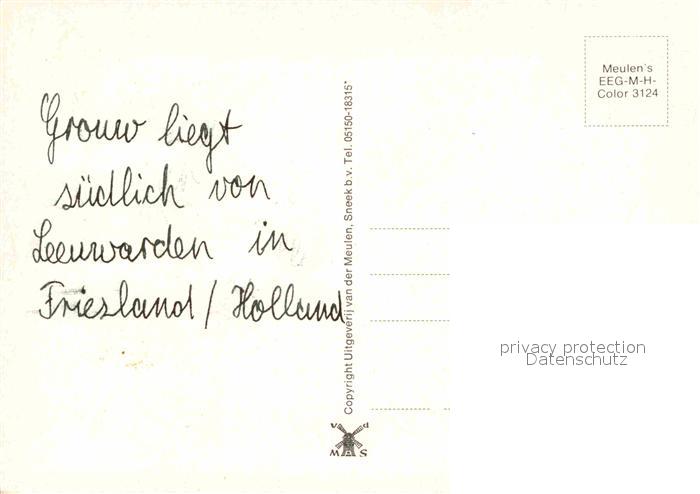 Grouw liegt
südlich von
Leeuwarden in
Friesland / Holland
Copyright Uitgeverij van der Meulen, Sneek b.v. Tel. 05150-18315*
Meulen's
EEG-M-H-
Color 3124
v d
M A S
privacy protection
Datenschutz